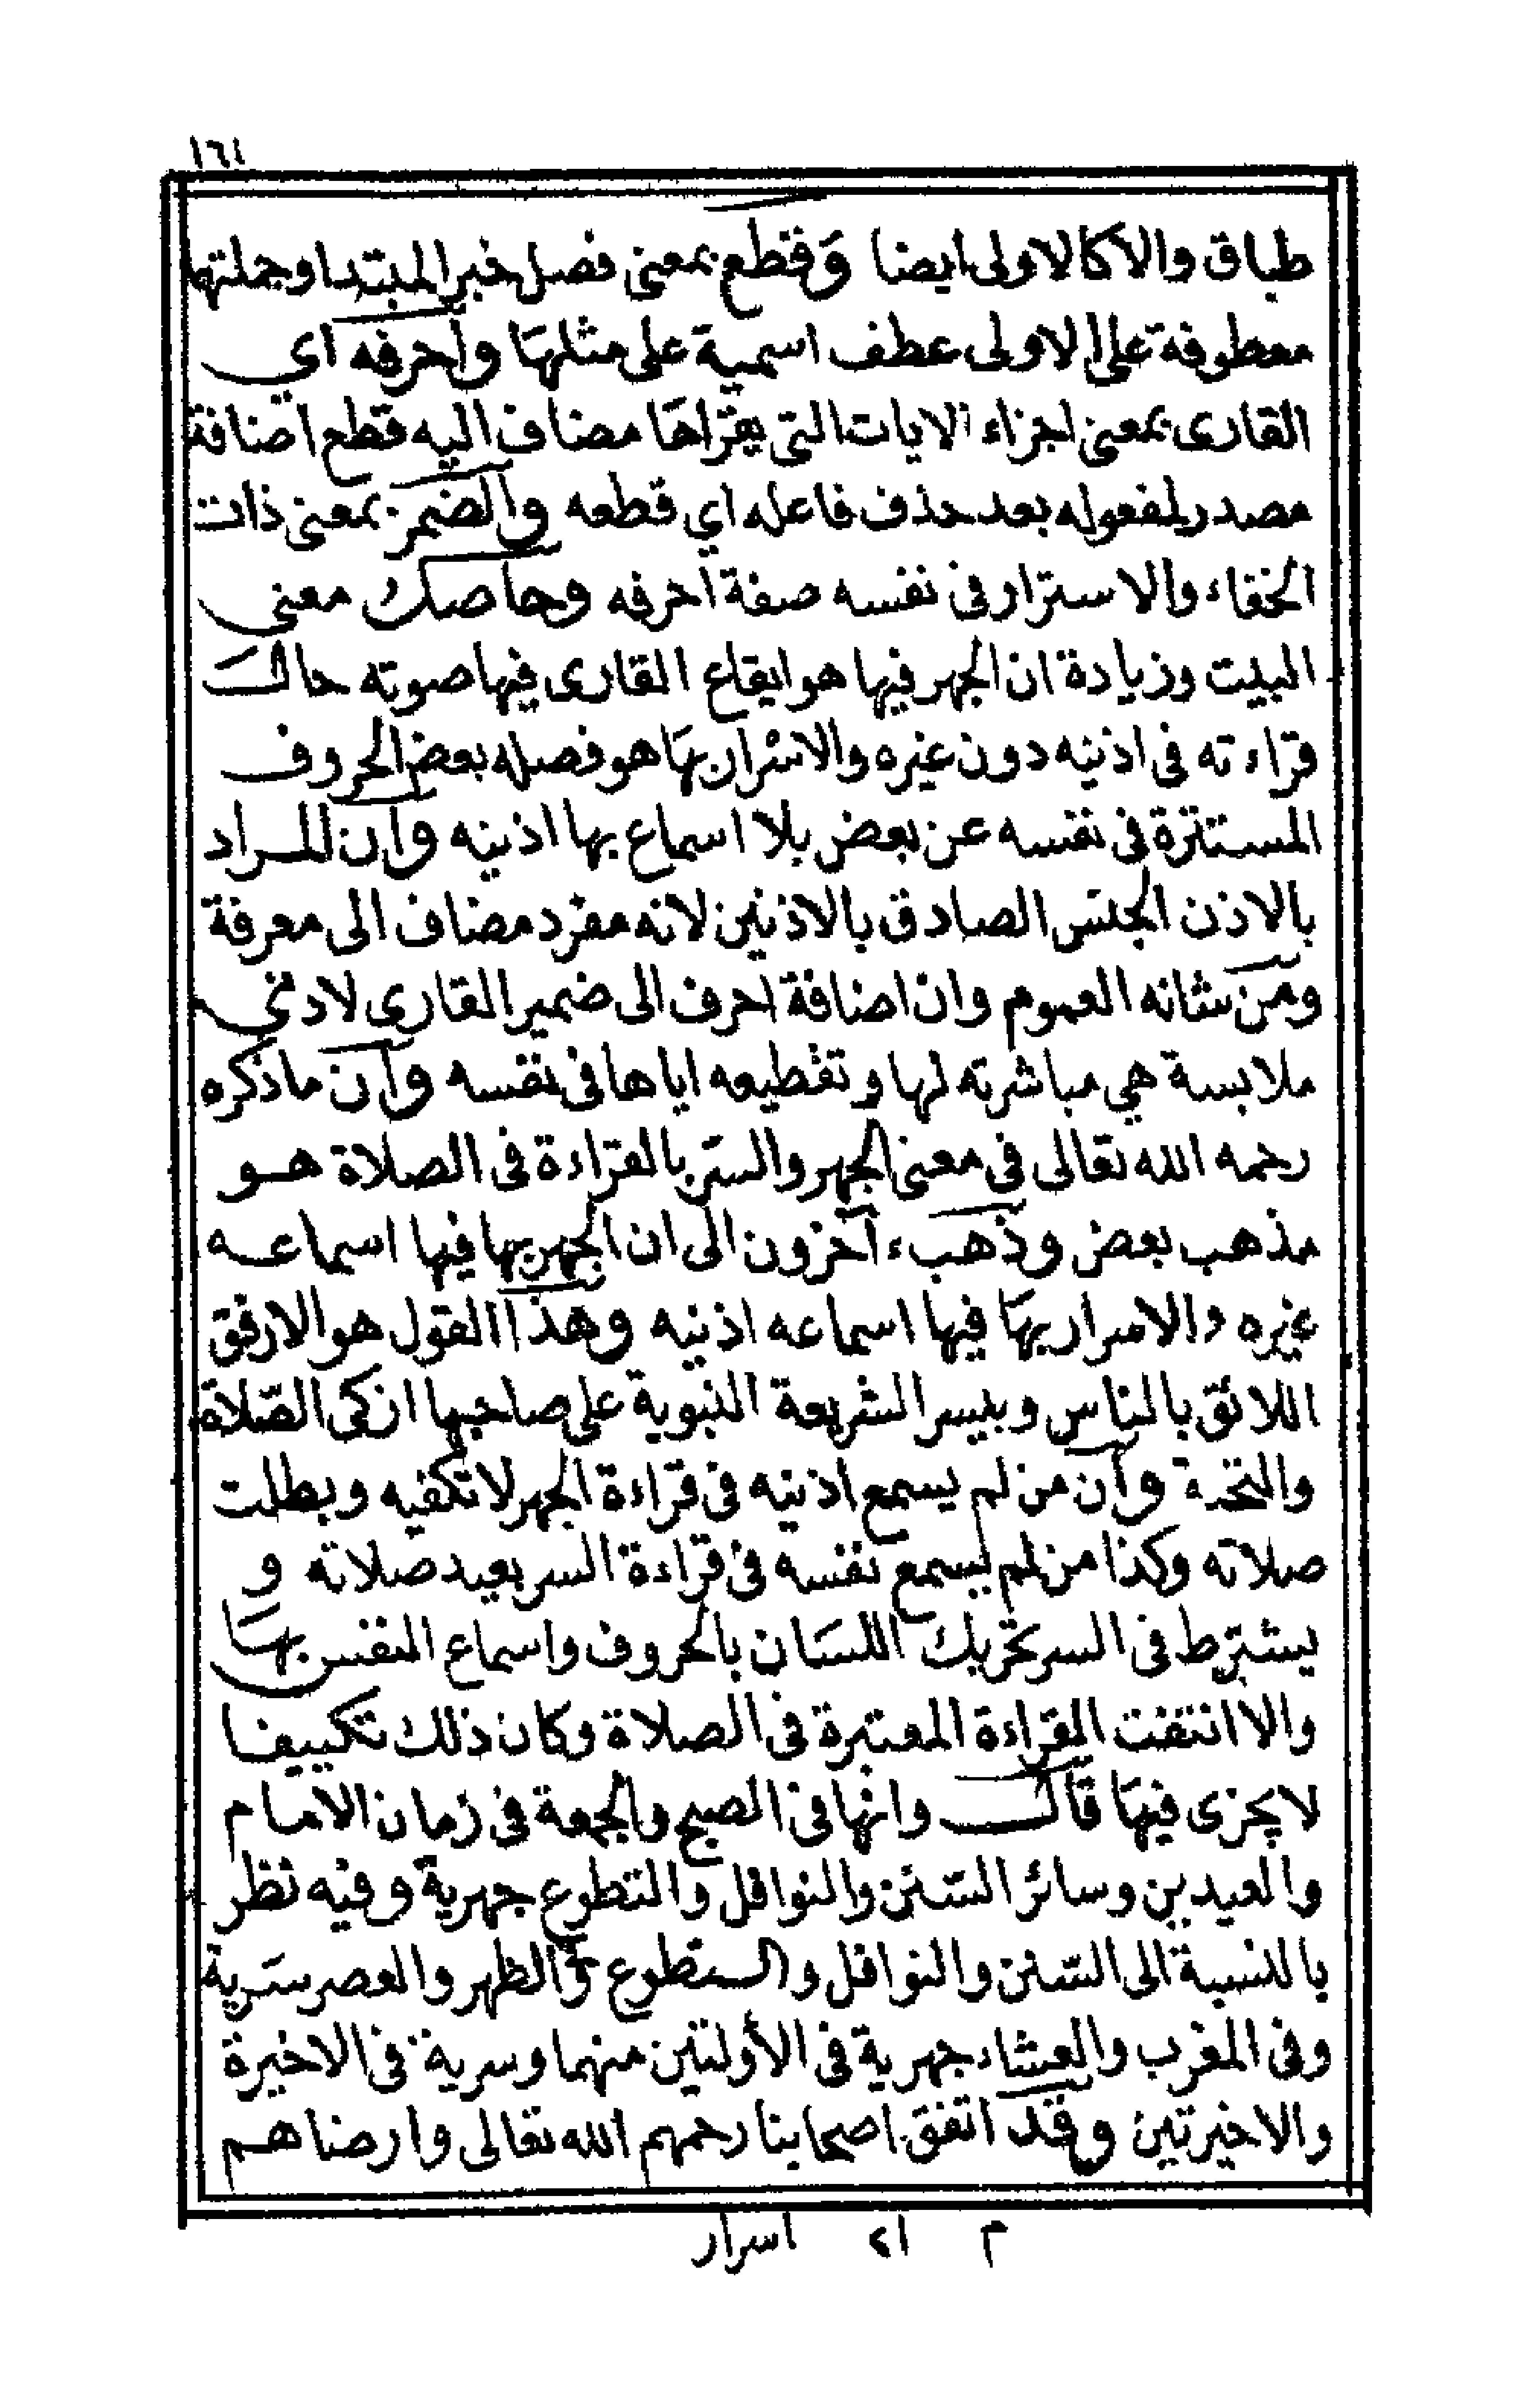 ١٦١
طباق والاكالاولى ايضا وقطع بمعنى فصل خبر المبتدا وجملتها
معطوفة على الاولى عطف اسمية على مثلهَا وأحرفه اي
القارى بمعنى اجزاء الايات التى يقراهَا مضاف اليه قطع اضافة
مصدر لمفعوله بعد حذف فاعله اي قطعه والضمر بمعنى ذات
الخفاء والاستزار فى نفسه صفة احرفه وحاصك معنى
البيت وزيادة ان الجهر فيها هو ايقاع القارى فيها صوته حالَ
قراءته فى اذنيه دون غيره والاسْرار بهَا هو فصله بعض الحروف
المستترة فى نفسه عن بعض بلا اسماع بها اذنيه وان المراد
بالاذن الجنس الصادق بالاذنين لانه مفرد مضاف الى معرفة
ومن شانه العموم وان اضافة احرف الى ضمير القارى لادنى
ملابسة هي مباشرته لها وتقطيعه اياها فى نفسه وان ماذكره
رحمه الله تعالى فى معنى الجهر والسّر بالقراءة فى الصلاة هو
مذهب بعض وذهب آخرون الى ان الجهر بها فيها اسماعه
غيره والاسرار بهَا فيها اسماعه اذنيه وهذا القول هو الارفق
اللائق بالناس وبيسر الشريعة النبوية على صاحبها ازكى الصّلاة
والتحية وان من لم يسمع اذنيه فى قراءة الجهر لا تكفيه وبطلت
صلاته وكذا من لم يسمع نفسه فى قراءة السر يعيد صلاته و
يشترط فى السر تحريك اللسَان بالحروف واسماع النفس بهَا
والا انتفت القراءة المعتبرة فى الصلاة وكان ذلك تكييفا
لا يجزى فيهَا قَال وانها فى الصبح والجمعة فى زمان الامام
والعيدين وسائر السّنن والنوافل والتطوع جهرية وفيه نظر
بالنسبة الى السّنن والنوافل والتطوع وفى الظهر والعصر سَرية
وفى المغرب والعشاء جهرية فى الأولتين منهما وسرية فى الاخيرة
والاخيرتين وقد اتفق اصحابنا رحمهم الله تعالى وارضاهم
م ٢١ اسرار